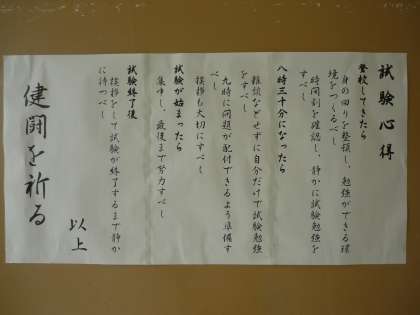 試験心得
登校してきたら
身の回りを整頓し、勉強ができる環
境をつくるべし
時間割を確認し、静かに試験勉強を
すべし
八時三十分になったら
雑談などせずに自分だけで試験勉強
をすべし
九時に問題が配付できるよう準備す
べし
挨拶も大切にすべし
試験が始まったら
集中し、最後まで努力すべし
試験終了後
挨拶をして試験が終了するまで静か
に待つべし
以上
健闘を祈る